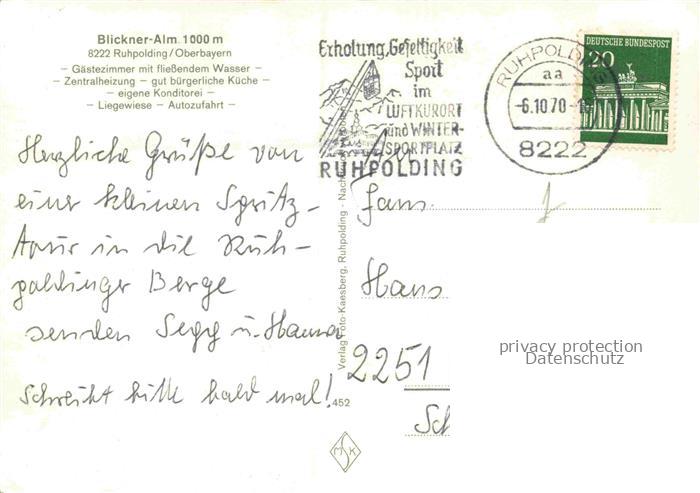 Blickner-Alm 1000 m
8222 Ruhpolding/Oberbayern
– Gästezimmer mit fließendem Wasser –
– Zentralheizung – gut bürgerliche Küche –
– eigene Konditorei –
– Liegewiese – Autozufahrt –
Herzliche Grüße von
einer kleinen Spritz-
tour in die Ruh-
poldinger Berge
senden Sepp u. Hanna
Schreibt bitte bald mal!
Verlag Foto-Kaesberg, Ruhpolding
452
MSK
Erholung, Geselligkeit
Sport
im
LUFTKURORT
und WINTER-
SPORTPLATZ
RUHPOLDING
RUHPOLDING
aa
-6.10.70-
8222
DEUTSCHE BUNDESPOST
20
Fam.
Hans
2251
Sch
privacy protection
Datenschutz